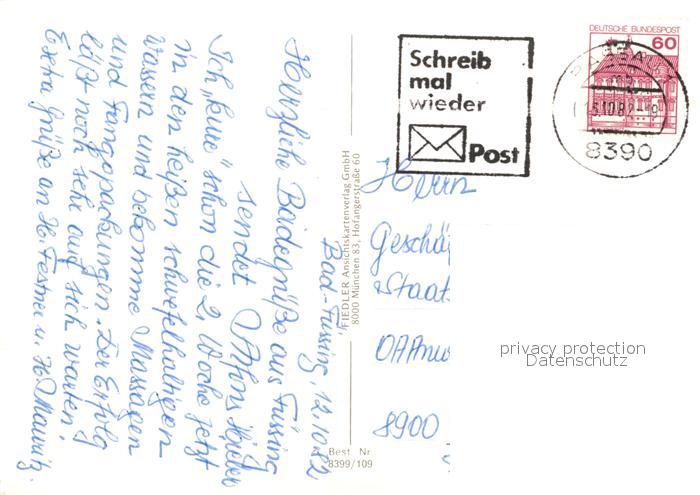 Bad-Füssing, 12.10.82
Herzliche Badegrüße aus Füssing
sendet Alfons
Ich "kure" schon die 2. Woche jetzt
in den heißen schwefelhaltigen
Wassern und bekomme Massagen
und Fangopackungen. Der Erfolg
läßt noch sehr auf sich warten!
Extra Grüße an H. Festner u. H. Mauritz.
FIEDLER Ansichtskartenverlag GmbH
8000 München 83, Hofangerstraße 60
Best Nr
8399/109
Schreib
mal
wieder
Post
DEUTSCHE BUNDESPOST
60
PASSAU
8390
Herrn
Geschä
Staat
8900
privacy protection
Datenschutz